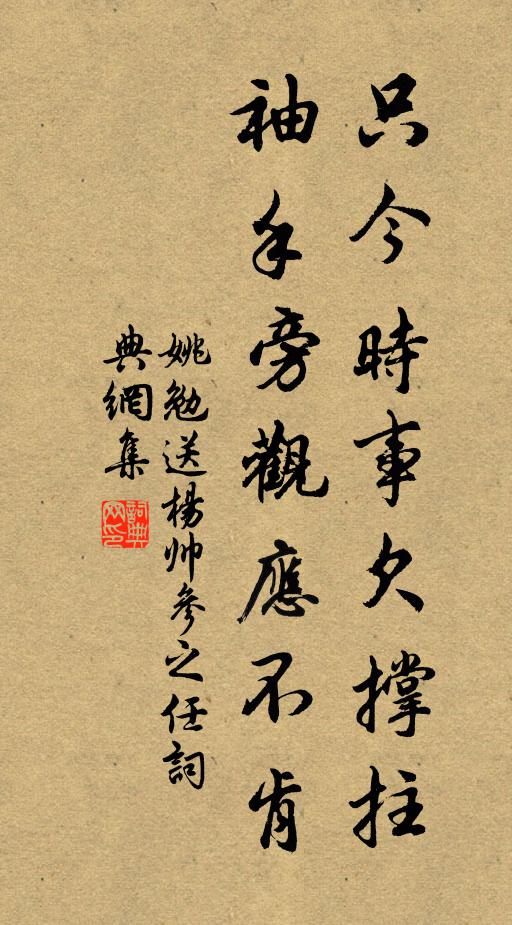 只今時事欠撐拄
袖手旁觀應不肯
姚勉送楊帅參之任詞
典網集
詞典網印